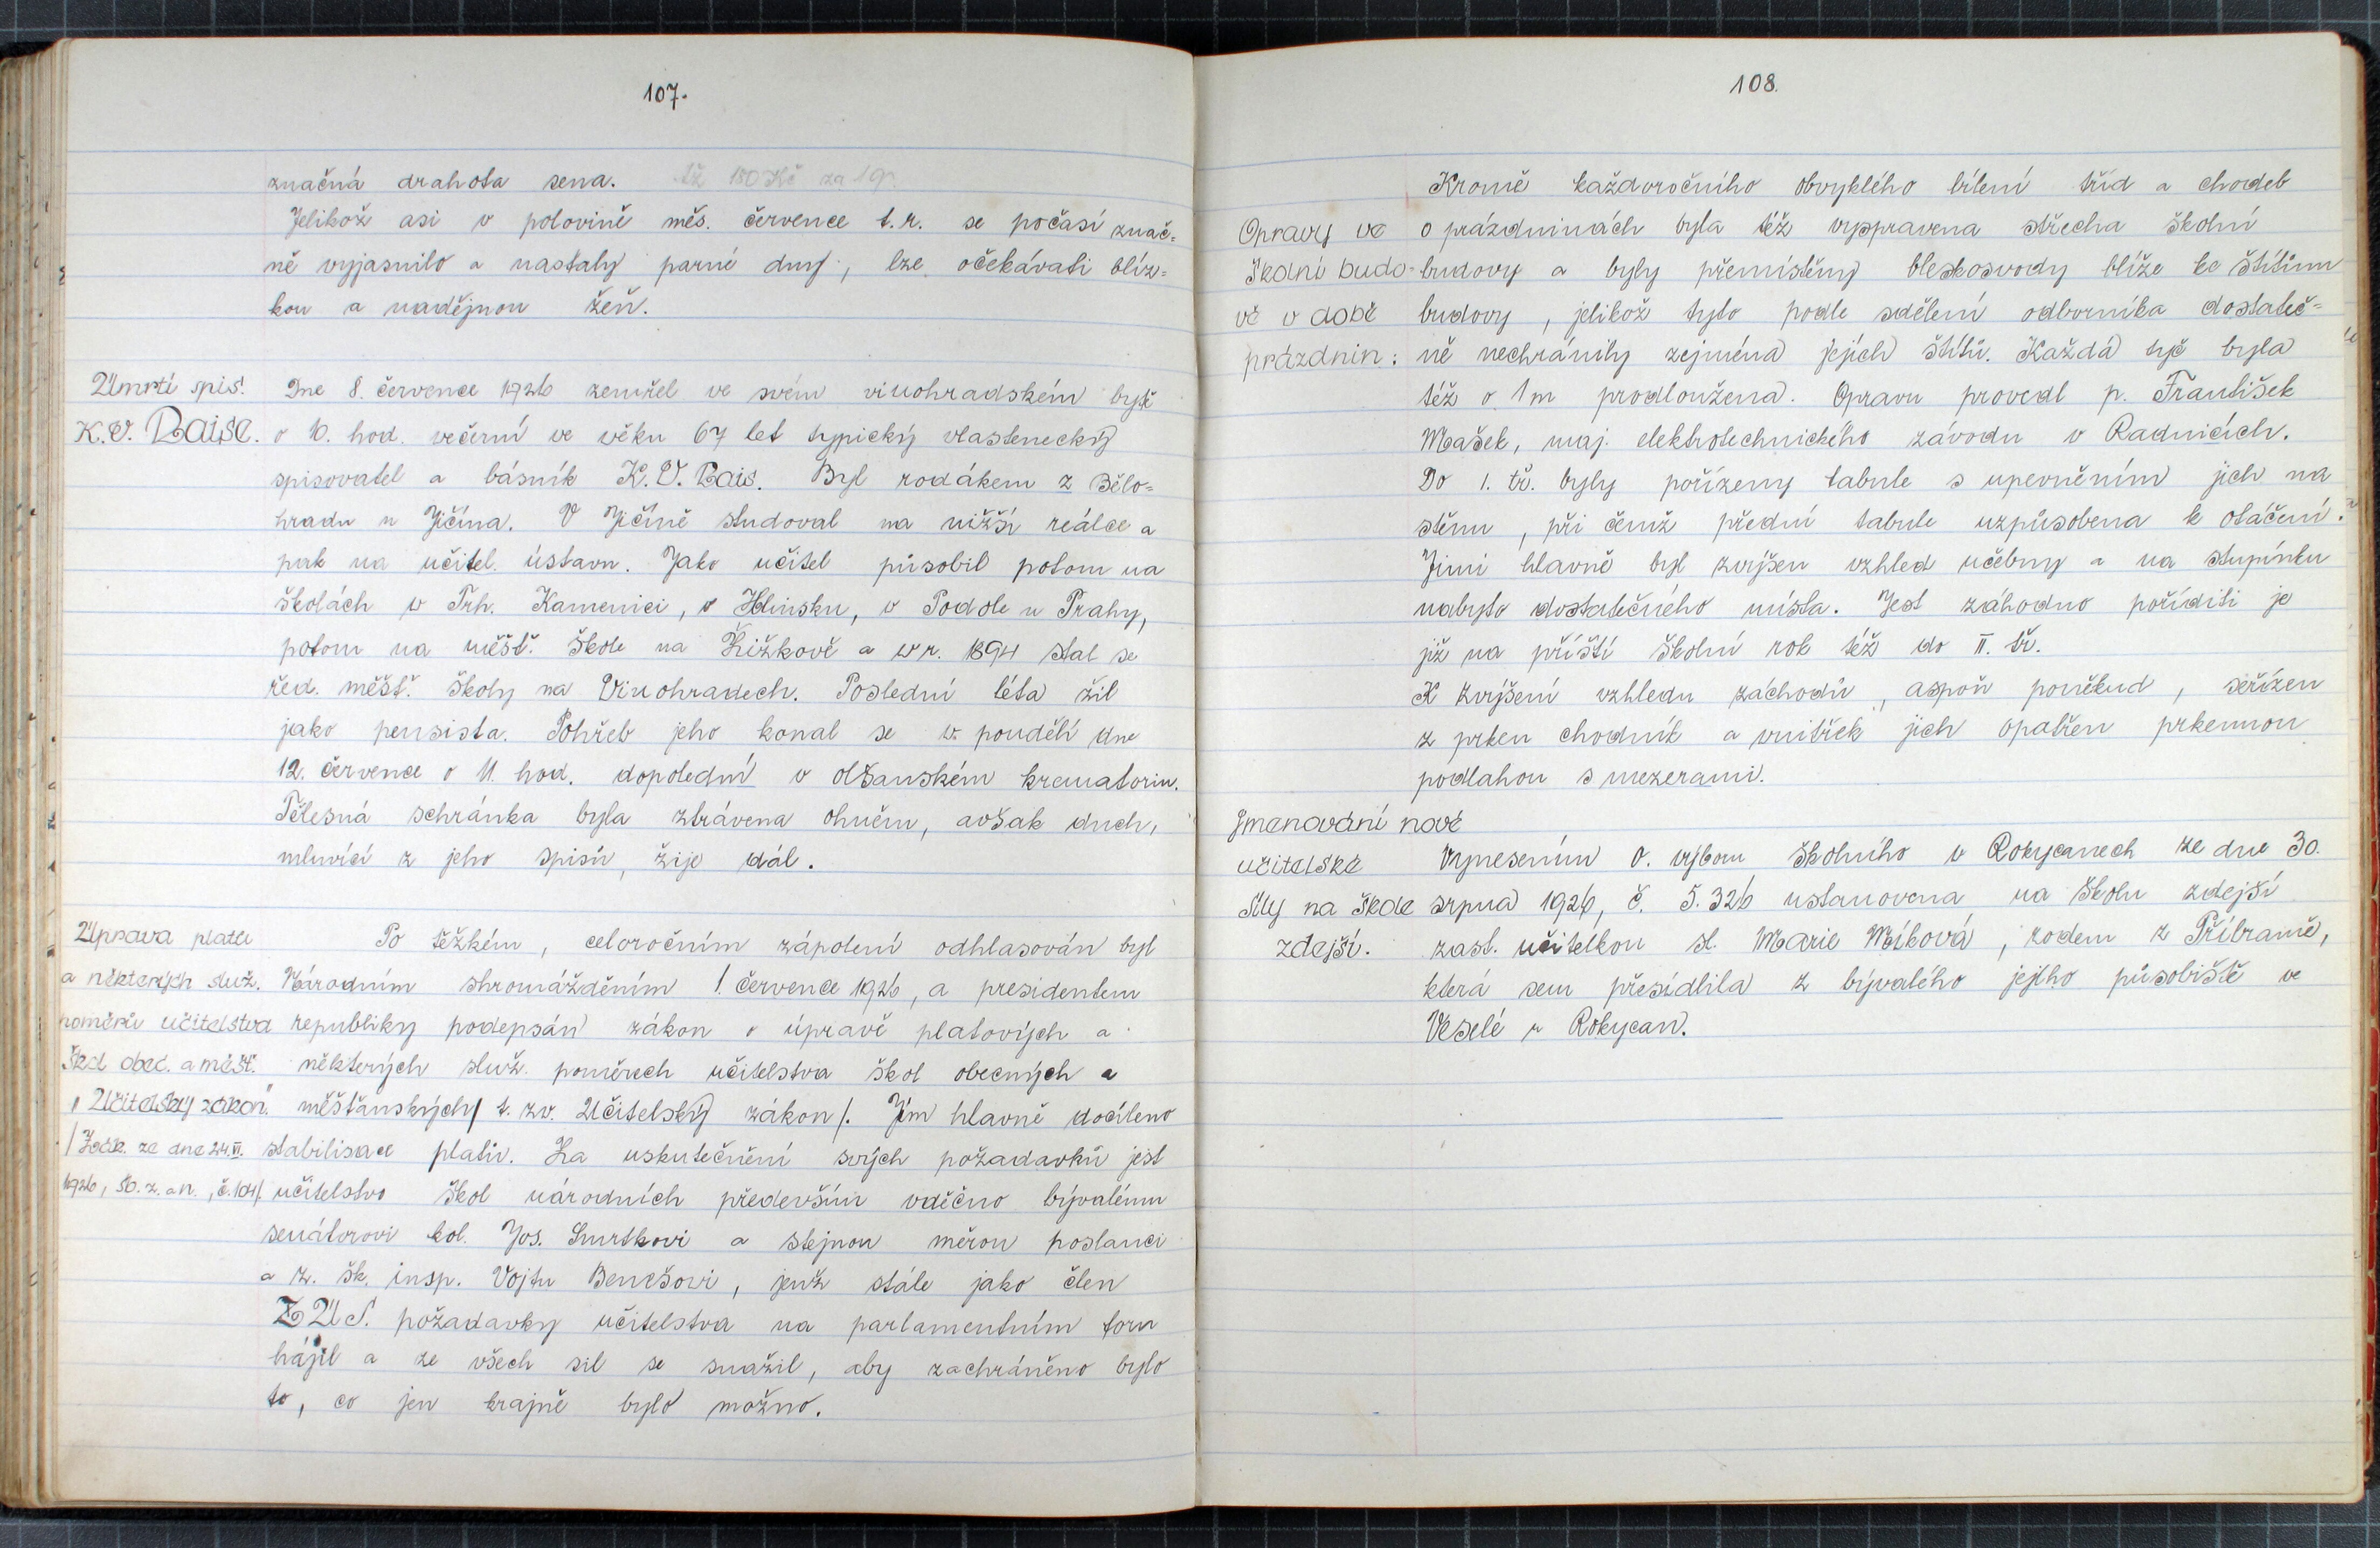 107.
značná drahota sena. až 150 Kč za 1 q.
Jelikož asi v polovině měs. července t.r. se počasí znač-
ně vyjasnilo a nastaly parné dny, lze očekávati blíz-
kou a nadějnou žeň.
Úmrtí spis.
K.V. Raise.
Dne 8. července 1926 zemřel ve svém vinohradském bytě
o 10. hod. večerní ve věku 67 let typický vlastenecký
spisovatel a básník K.V. Rais. Byl rodákem z Bělo-
hradu u Jičína. V Jičíně studoval na nižší reálce a
pak na učitel. ústavu. Jako učitel působil potom na
školách v Trh. Kamenici, v Hlinsku, v Podole u Prahy,
potom na měšť. škole na Žižkově a v r. 1894 stal se
řed. měšť. školy na Vinohradech. Poslední léta žil
jako pensista. Pohřeb jeho konal se v pondělí dne
12. července o 11. hod. dopolední v olšanském krematoriu.
Tělesná schránka byla ztrávena ohněm, avšak duch,
mluvící z jeho spisů, žije dál.
Úprava platů
a některých služ.
poměrů učitelstva
škol obec. a měšť.
„Učitelský zákon".
/Zák. ze dne 24.VI.
1926, Sb. z. a n., č. 104/.
Po těžkém, celoročním zápolení odhlasován byl
Národním shromážděním 1. července 1926, a presidentem
republiky podepsán zákon o úpravě platových a
některých služ. poměrech učitelstva škol obecných a
měšťanských / t. zv. Učitelský zákon /. Jím hlavně docíleno
stabilisace platů. Za uskutečnění svých požadavků jest
učitelstvo škol národních především vděčno bývalému
senátorovi kol. Jos. Smrtkovi a stejnou měrou poslanci
a z. šk. insp. Vojtu Benešovi, jenž stále jako člen
ZÚS. požadavky učitelstva na parlamentním foru
hájil a ze všech sil se snažil, aby zachráněno bylo
to, co jen krajně bylo možno.
108.
Kromě každoročního obvyklého bílení tříd a chodeb
Opravy ve
školní budo-
vě v době
prázdnin:
o prázdninách byla též vyspravena střecha školní
budovy a byly přemístěny bleskosvody blíže ke štítům
budovy, jelikož tyto podle sdělení odborníka dostateč-
ně nechránily zejména jejích štítů. Každá tyč byla
též o 1 m prodloužena. Opravu provedl p. František
Mašek, maj. elektrotechnického závodu v Radnicích.
Do 1. tř. byly pořízeny tabule s upevněním jich na
stěnu, při čemž přední tabule uzpůsobena k otáčení.
Jimi hlavně byl zvýšen vzhled učebny a na stupínku
nabyto dostatečného místa. Jest záhodno poříditi je
již na příští školní rok též do II. tř.
K zvýšení vzhledu záchodů, aspoň poněkud, seřízen
z prken chodník a vnitřek jich opatřen prkennou
podlahou s mezerami.
Jmenování nové
učitelské
síly na škole
zdejší.
Vynesením o. výboru školního v Rokycanech ze dne 30.
srpna 1926, č. 5.326 ustanovena na školu zdejší
zast. učitelkou sl. Marie Míková, rodem z Příbramě,
která sem přesídlila z bývalého jejího působiště ve
Veselé u Rokycan.